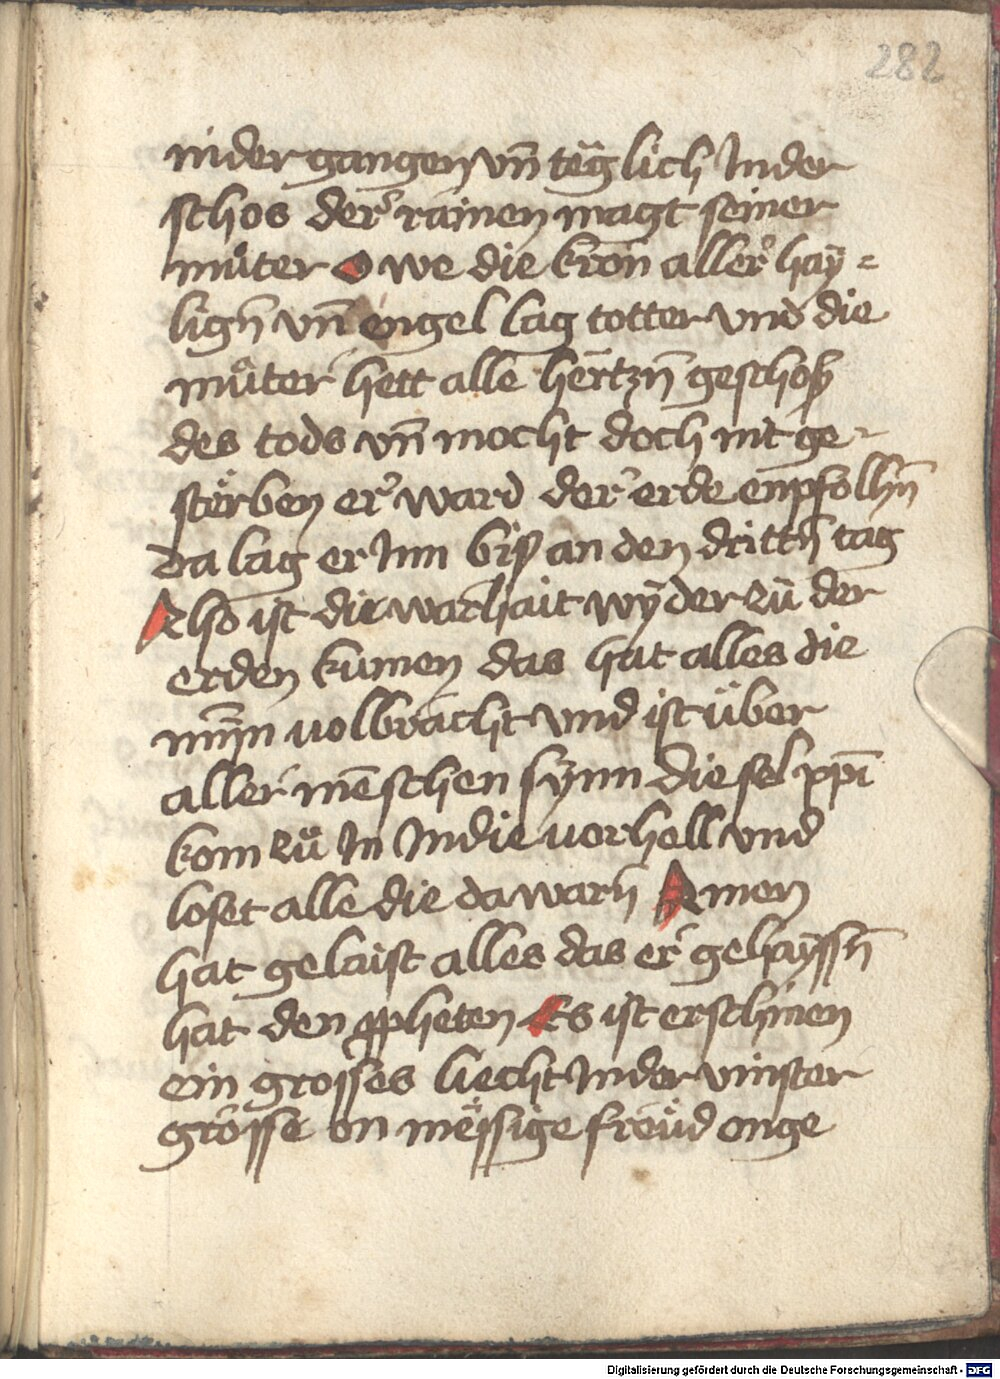 282
nider gangen vn̄ täglich In der
schos der rainen magt seiner
muͦter O we die kron aller hay=
lign̄ vn̄ engel lag totter vnd die
muͦter hett alle hertzn̄ geschoß
des tods vn̄ mocht doch nit ge-
sterben er ward der erde enpfolhn̄
da lag er Inn biß an den drittn̄ tag
Also ist die warhait wÿder zů der
erden kumen das hat alles die
mÿn volbracht vnd ist über
aller mēschen sÿnn die sel xpī
kom zů In In die vorhell vnd
loset alle die da warn̄ Amen
hat gelaist alles das er gehayssn̄
hat den ꝓpheten Es ist erschinen
ein grosses liecht In der vinster
grösse on mëssige freüd onge
Digitalisierung gefördert durch die Deutsche Forschungsgemeinschaft - DFG